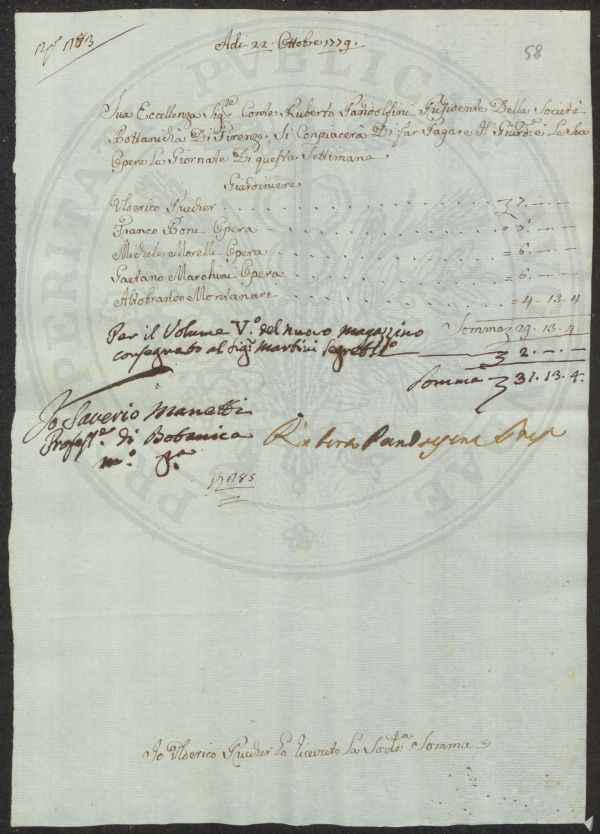 Adi 22 Ottobre 1779.
58
Sua Eccellenza Sig.re Conte Ruberto Pandolfini Presidente Della Società
Bottanicha Di Firenze, Si Conpiacerà Di far Pagare Il Giard.e e Le Sue
Opere Le Giornate Di questa Settimana
Giardiniere
Ulderico Prucher 7.—.—
Franco Boni Opera = 6.—.—
Michele Morelli Opera = 6.—.—
Gaetano Marchini Opera = 6.—.—
Aldobrando Montanari = 4. 13. 4
Somma 29. 13. 4
Per il Volume V.º del nuovo magazzino
consegnato al Sig.r Martini Segret.rio 2.—.—
Somma — 31. 13. 4.
Io Saverio Manetti
Profess.re di Botanica
m.º p.a
Ruberto Pandolfini Pres.
Io Ulderico Prucher ho ricevuto La Sod.ta Somma